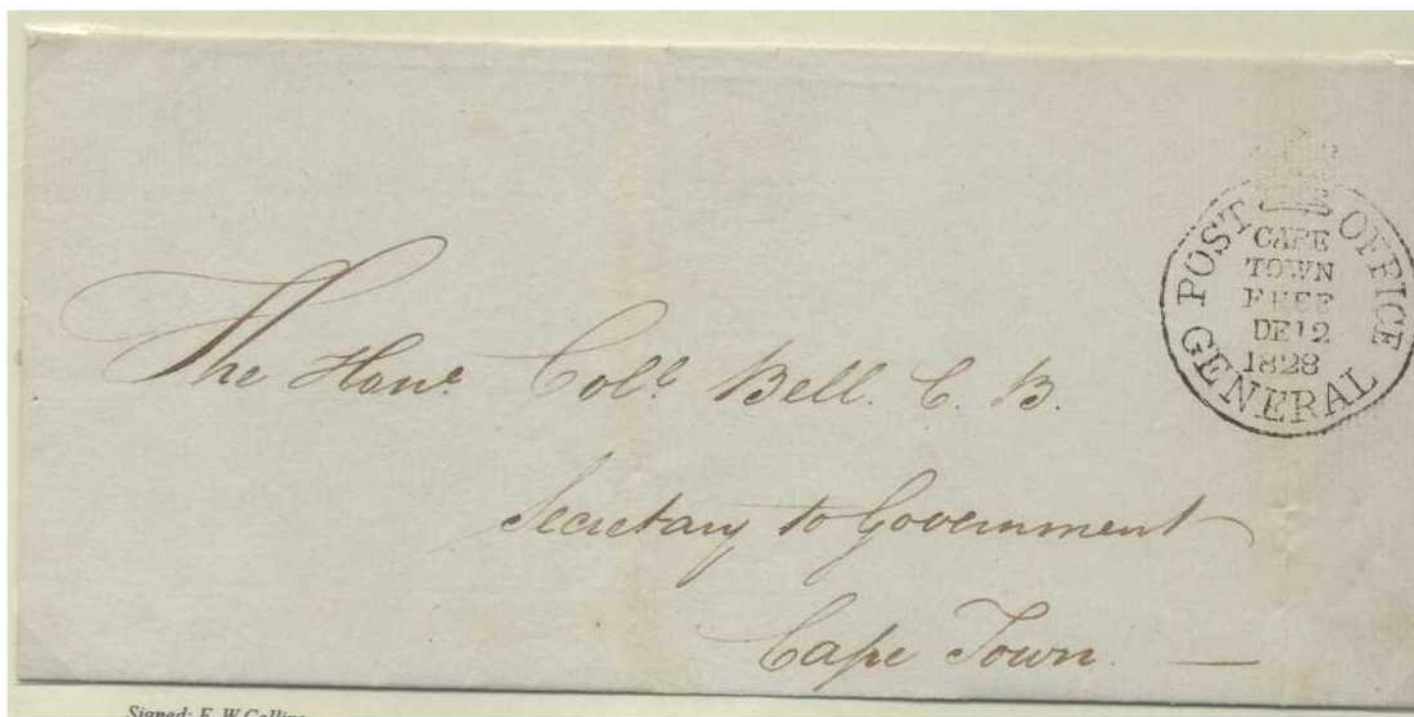 POST OFFICE
CAPE
TOWN
FREE
DE 12
1828
GENERAL
The Honᵉ. Colˡ. Bell. C. B.
Secretary to Government
Cape Town. —
Signed: E. W. Collins